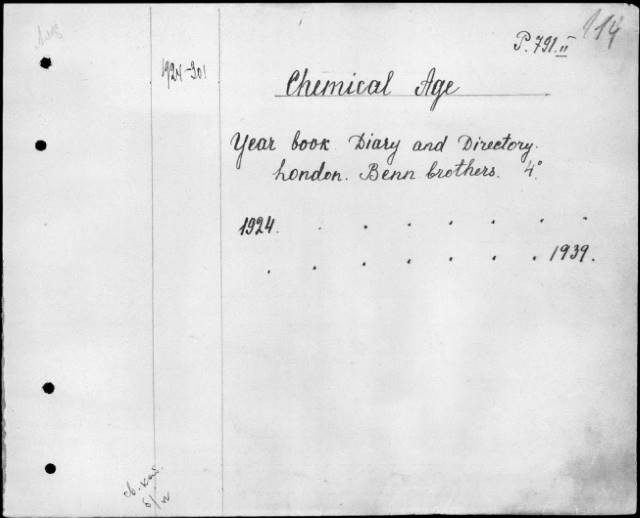 114
P. 791. II
1924-30!
Chemical Age
Year book. Diary and Directory.
London. Benn brothers. 4°.
1924. . . . . . . .
. . . . . . . 1939.
св. кат.
б/н